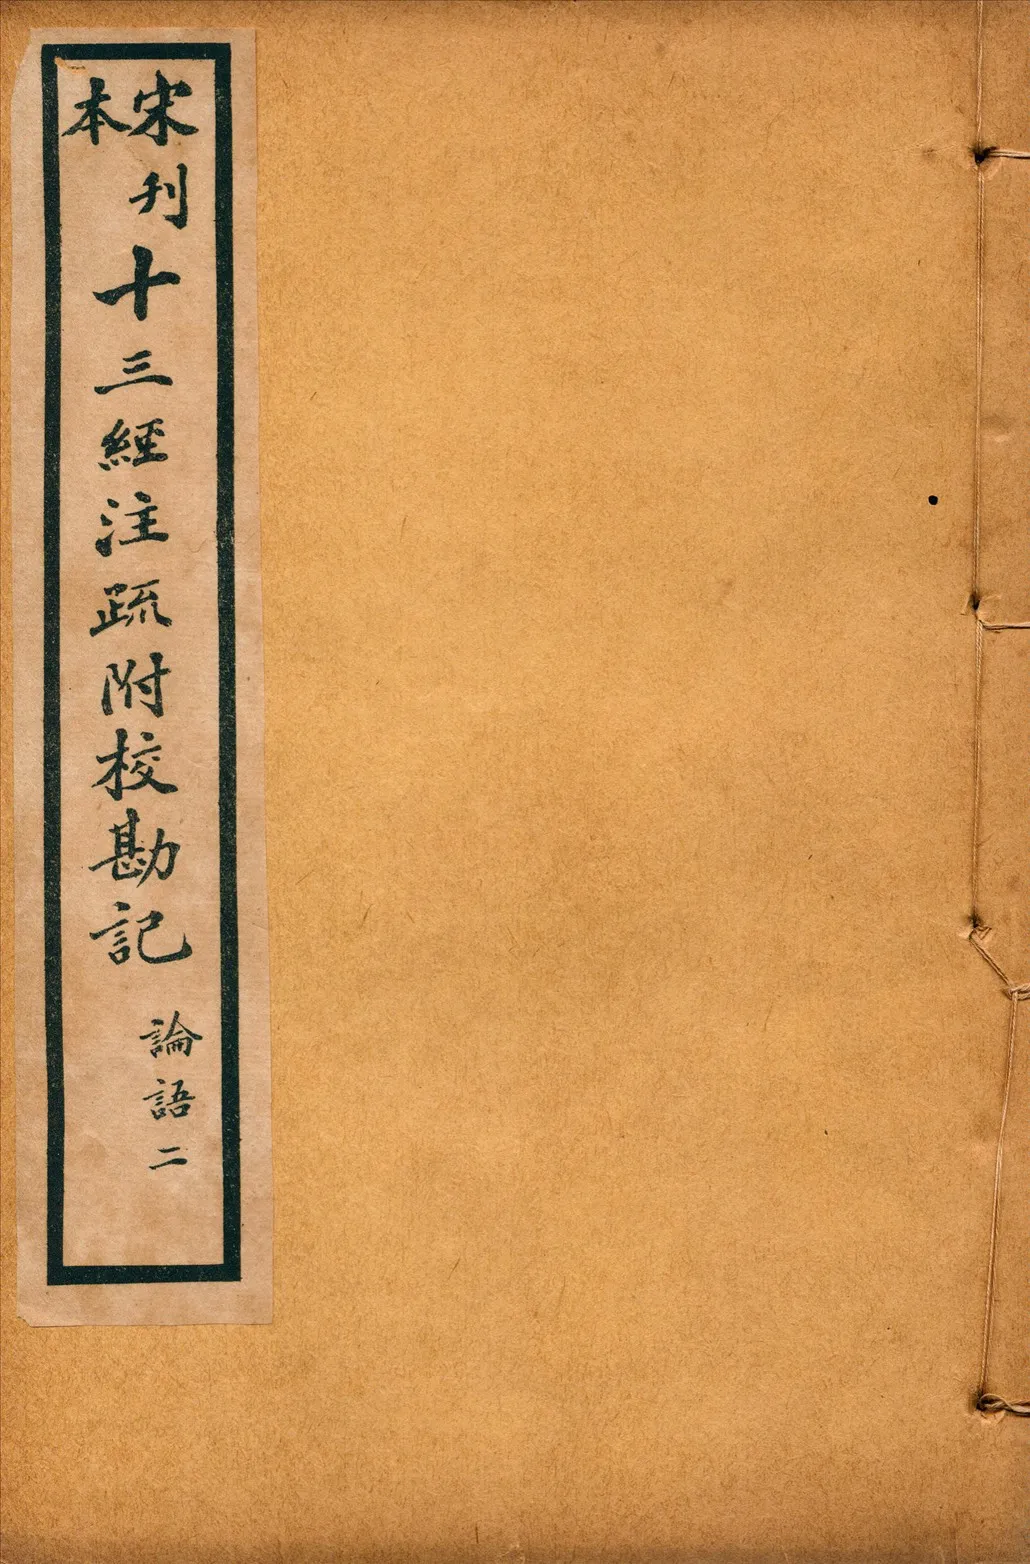 宋本
刋十三經注疏附校勘記
論語二